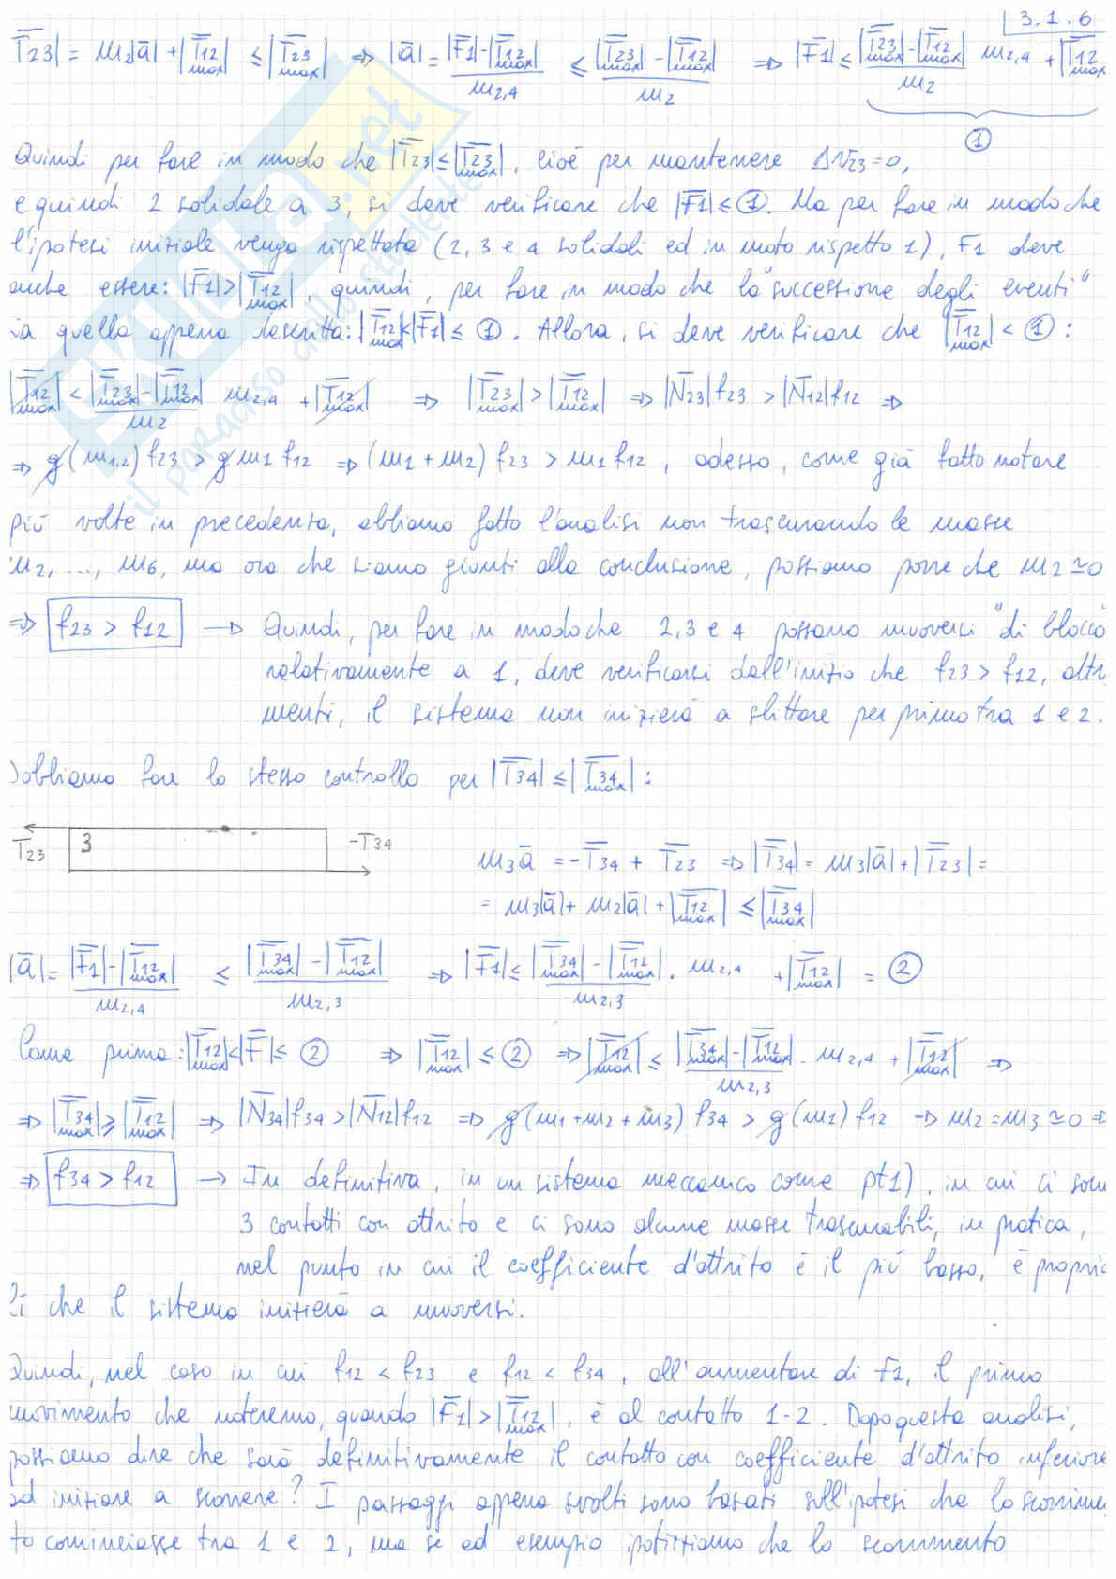 3.1.6
|T̄23| = m2|ā| + |T̄12 max| ≤ |T̄23 max| ⇒ |ā| = (|F̄1| - |T̄12 max|) / m2,4 ≤ (|T̄23 max| - |T̄12 max|) / m2 ⇒ |F̄1| ≤ (|T̄23 max| - |T̄12 max|) / m2 m2,4 + |T̄12 max|
①
Quindi per fare in modo che |T̄23| ≤ |T̄23 max|, cioè per mantenere Δv23=0,
e quindi 2 solidale a 3, si deve verificare che |F̄1| ≤ ①. Ma per fare in modo che
l'ipotesi iniziale venga rispettata (2, 3 e 4 solidali ed in moto rispetto 1), F1 deve
anche essere: |F̄1| > |T̄12 max|, quindi, per fare in modo che la "successione degli eventi"
sia quella appena descritta: |T̄12 max| < |F̄1| ≤ ①. Allora, si deve verificare che |T̄12 max| < ① :
|T̄12 max| < (|T̄23 max| - |T̄12 max|) / m2 m2,4 + |T̄12 max| ⇒ |T̄23 max| > |T̄12 max| ⇒ |N̄23| f23 > |N̄12| f12 ⇒
⇒ g(m1,2) f23 > g m1 f12 ⇒ (m1 + m2) f23 > m1 f12, adesso, come già fatto notare
più volte in precedenza, abbiamo fatto l'analisi non trascurando le masse
m2, ..., m6, ma ora che siamo giunti alla conclusione, possiamo porre che m2 ≃ 0
⇒ f23 > f12 → Quindi, per fare in modo che 2, 3 e 4 possano muoversi "di blocco"
relativamente a 1, deve verificarsi dall'inizio che f23 > f12, altri
menti, il sistema non inizierà a slittare per primo tra 1 e 2.
Dobbiamo fare lo stesso controllo per |T̄34| ≤ |T̄34 max| :
T23 3 -T34
m3 ā = -T̄34 + T̄23 ⇒ |T̄34| = m3|ā| + |T̄23| =
= m3|ā| + m2|ā| + |T̄12 max| ≤ |T̄34 max|
|ā| = (|F̄1| - |T̄12 max|) / m2,4 ≤ (|T̄34 max| - |T̄12 max|) / m2,3 ⇒ |F̄1| ≤ (|T̄34 max| - |T̄12 max|) / m2,3 · m2,4 + |T̄12 max| = ②
Come prima: |T̄12 max| < |F̄| ≤ ② ⇒ |T̄12 max| ≤ ② ⇒ |T̄12 max| ≤ (|T̄34 max| - |T̄12 max|) / m2,3 · m2,4 + |T̄12 max| ⇒
⇒ |T̄34 max| ≥ |T̄12 max| ⇒ |N̄34| f34 > |N̄12| f12 ⇒ g(m1+m2+m3) f34 > g(m1) f12 → m2 = m3 ≃ 0 ⇒
⇒ f34 > f12 → In definitiva, in un sistema meccanico come pt1), in cui ci sono
3 contatti con attrito e ci sono alcune masse trascurabili, in pratica,
nel punto in cui il coefficiente d'attrito è il più basso, è proprio
lì che il sistema inizierà a muoversi.
Quindi, nel caso in cui f12 < f23 e f12 < f34, all'aumentare di F1, il primo
movimento che noteremo, quando |F̄1| > |T̄12 max|, è al contatto 1-2. Dopo questa analisi,
possiamo dire che sarà definitivamente il contatto con coefficiente d'attrito inferiore
ad iniziare a scorrere? I passaggi appena svolti sono basati sull'ipotesi che lo scorrimen
to cominciasse tra 1 e 2, ma se ad esempio ipotizziamo che lo scorrimento